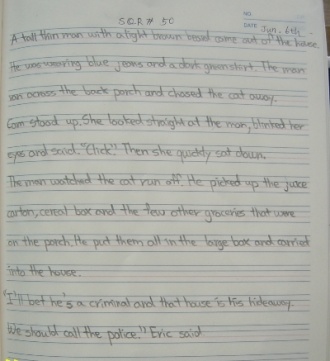 NO.
SQR# 50
DATE Jun. 6th
A tall thin man with a light brown beard came out of the house.
He was wearing blue jeans and a dark green shirt. The man
ran across the back porch and chased the cat away.
Cam stood up. She looked straight at the man, blinked her
eyes and said. "Click." Then she quickly sat down.
The man watched the cat run off. He picked up the juice
carton, cereal box and the few other groceries that were
on the porch. He put them all in the large box and carried
into the house.
"I'll bet he's a criminal and that house is his hideaway.
We should call the police." Eric said.